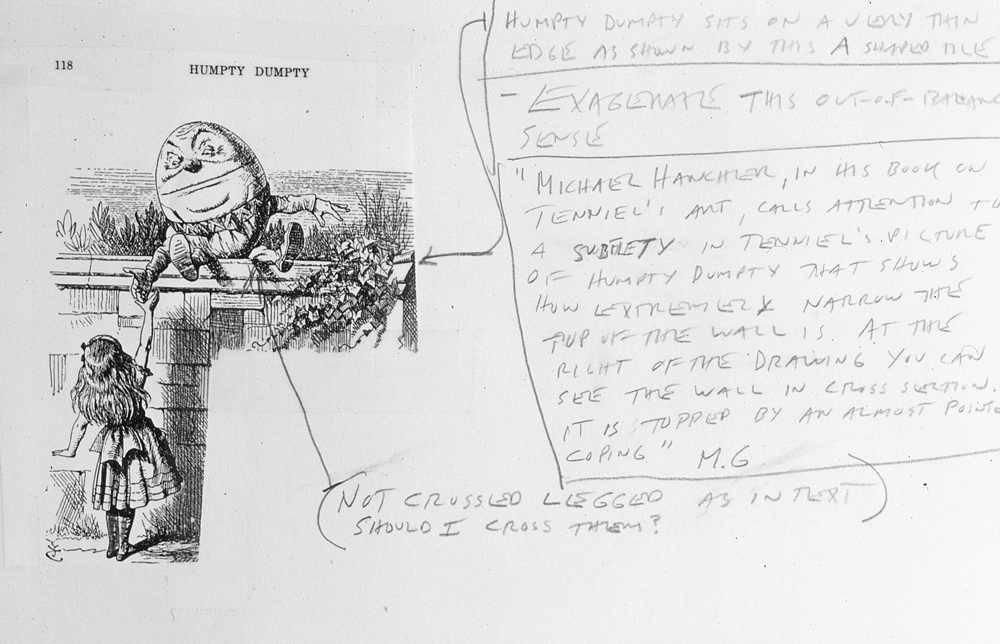 118
HUMPTY DUMPTY
HUMPTY DUMPTY SITS ON A VERY THIN
EDGE AS SHOWN BY THIS A SHAPED TILE
- EXAGERATE THIS OUT-OF-BALANC
SENSE
"MICHAEL HANCHER, IN HIS BOOK ON
TENNIEL'S ART, CALLS ATTENTION TO
A SUBTLETY IN TENNIEL'S PICTURE
OF HUMPTY DUMPTY THAT SHOWS
HOW EXTREMELY NARROW THE
TOP OF THE WALL IS. AT THE
RIGHT OF THE DRAWING YOU CAN
SEE THE WALL IN CROSS SECTION.
IT IS TOPPED BY AN ALMOST POINTE
COPING" M.G
(NOT CROSSED LEGGED AS IN TEXT
SHOULD I CROSS THEM?)